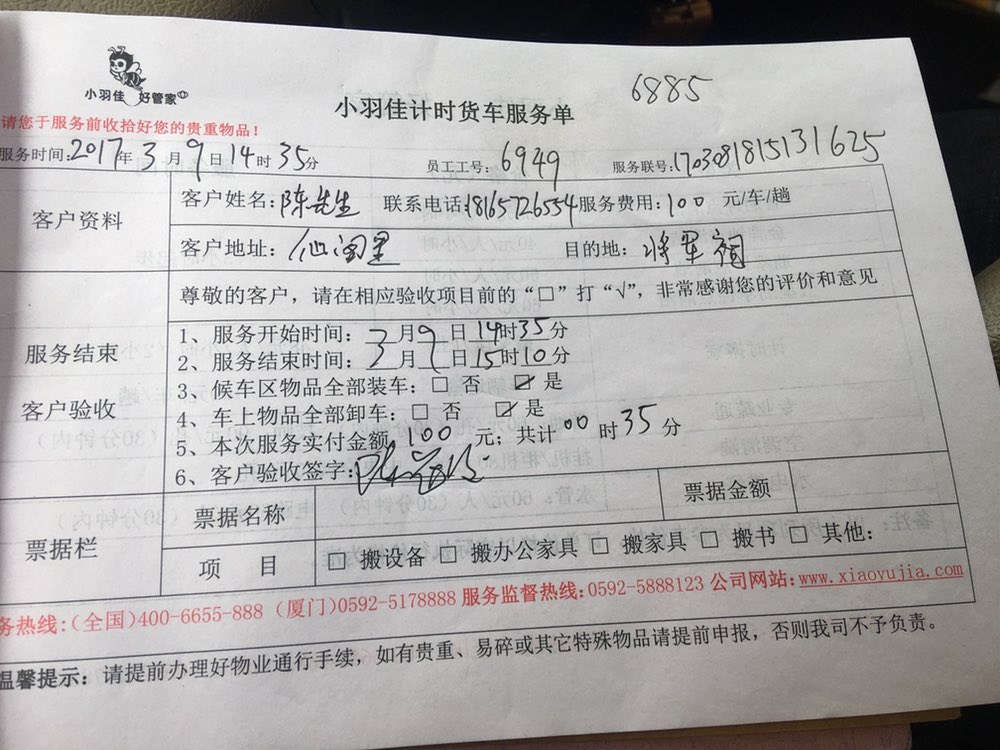 小羽佳 好管家
小羽佳计时货车服务单
6885
请您于服务前收拾好您的贵重物品！
服务时间:2017年3月9日14时35分 员工工号：6949 服务联号:1703081815131625
客户资料
客户姓名：陈先生 联系电话:18165726554 服务费用：100 元/车/趟
客户地址：仙阁里 目的地：将军祠
尊敬的客户，请在相应验收项目前的“□”打“√”，非常感谢您的评价和意见
服务结束
客户验收
1、服务开始时间：3月9日14时35分
2、服务结束时间：3月9日15时10分
3、候车区物品全部装车：□ 否 ☑ 是
4、车上物品全部卸车：□ 否 ☑ 是
5、本次服务实付金额 100 元；共计 00 时 35 分
6、客户验收签字：
票据栏
票据名称 票据金额
项 目 □ 搬设备 □ 搬办公家具 □ 搬家具 □ 搬书 □ 其他：
务热线:(全国)400-6655-888 (厦门)0592-5178888 服务监督热线:0592-5888123 公司网站:www.xiaoyujia.com
温馨提示：请提前办理好物业通行手续，如有贵重、易碎或其它特殊物品请提前申报，否则我司不予负责。